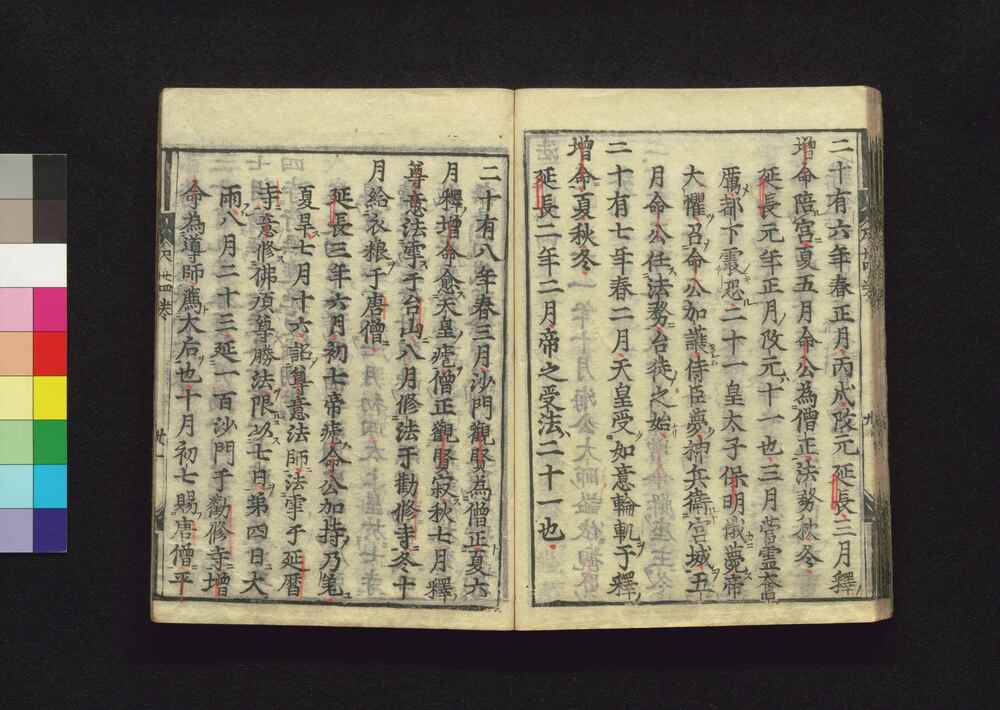 二十有六年春正月丙戌改元延長三月釋
増命陪宮夏五月命公為僧正法務秋冬
延長元年正月改元十一也三月菅霊奮
厲都下震恐二十一皇太子保明儀薨帝
大懼召命公加護侍臣夢神兵衛宮城五
月命公任法務台徒之始
二十有七年春二月天皇受如意輪軌于釋
増命夏秋冬
延長二年二月帝之受法二十一也
二十有八年春三月沙門觀賢為僧正夏六
月釋増命愈天皇瘧僧正觀賢寂秋七月釋
尊意法雩于台山八月修法于勸修寺冬十
月給衣粮于唐僧
延長三年六月初七帝瘧命公加持乃差
夏旱七月十六詔尊意法師法雩于延暦
寺意修佛頂尊勝法限以七日第四日大
雨八月二十三延一百沙門于勸修寺増
命為導師薦大后也十月初七賜唐僧平
廿一